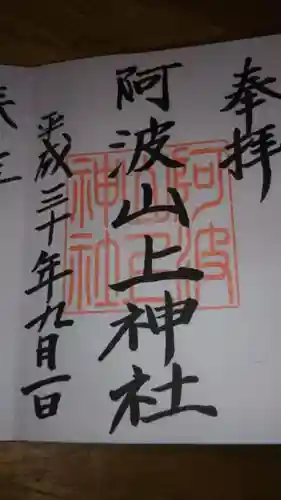 奉拝
阿波山上神社
平成三十年九月一日
阿波
山上
神社